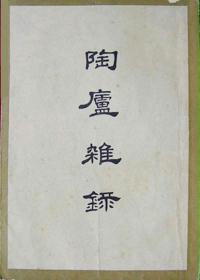 陶廬雜錄